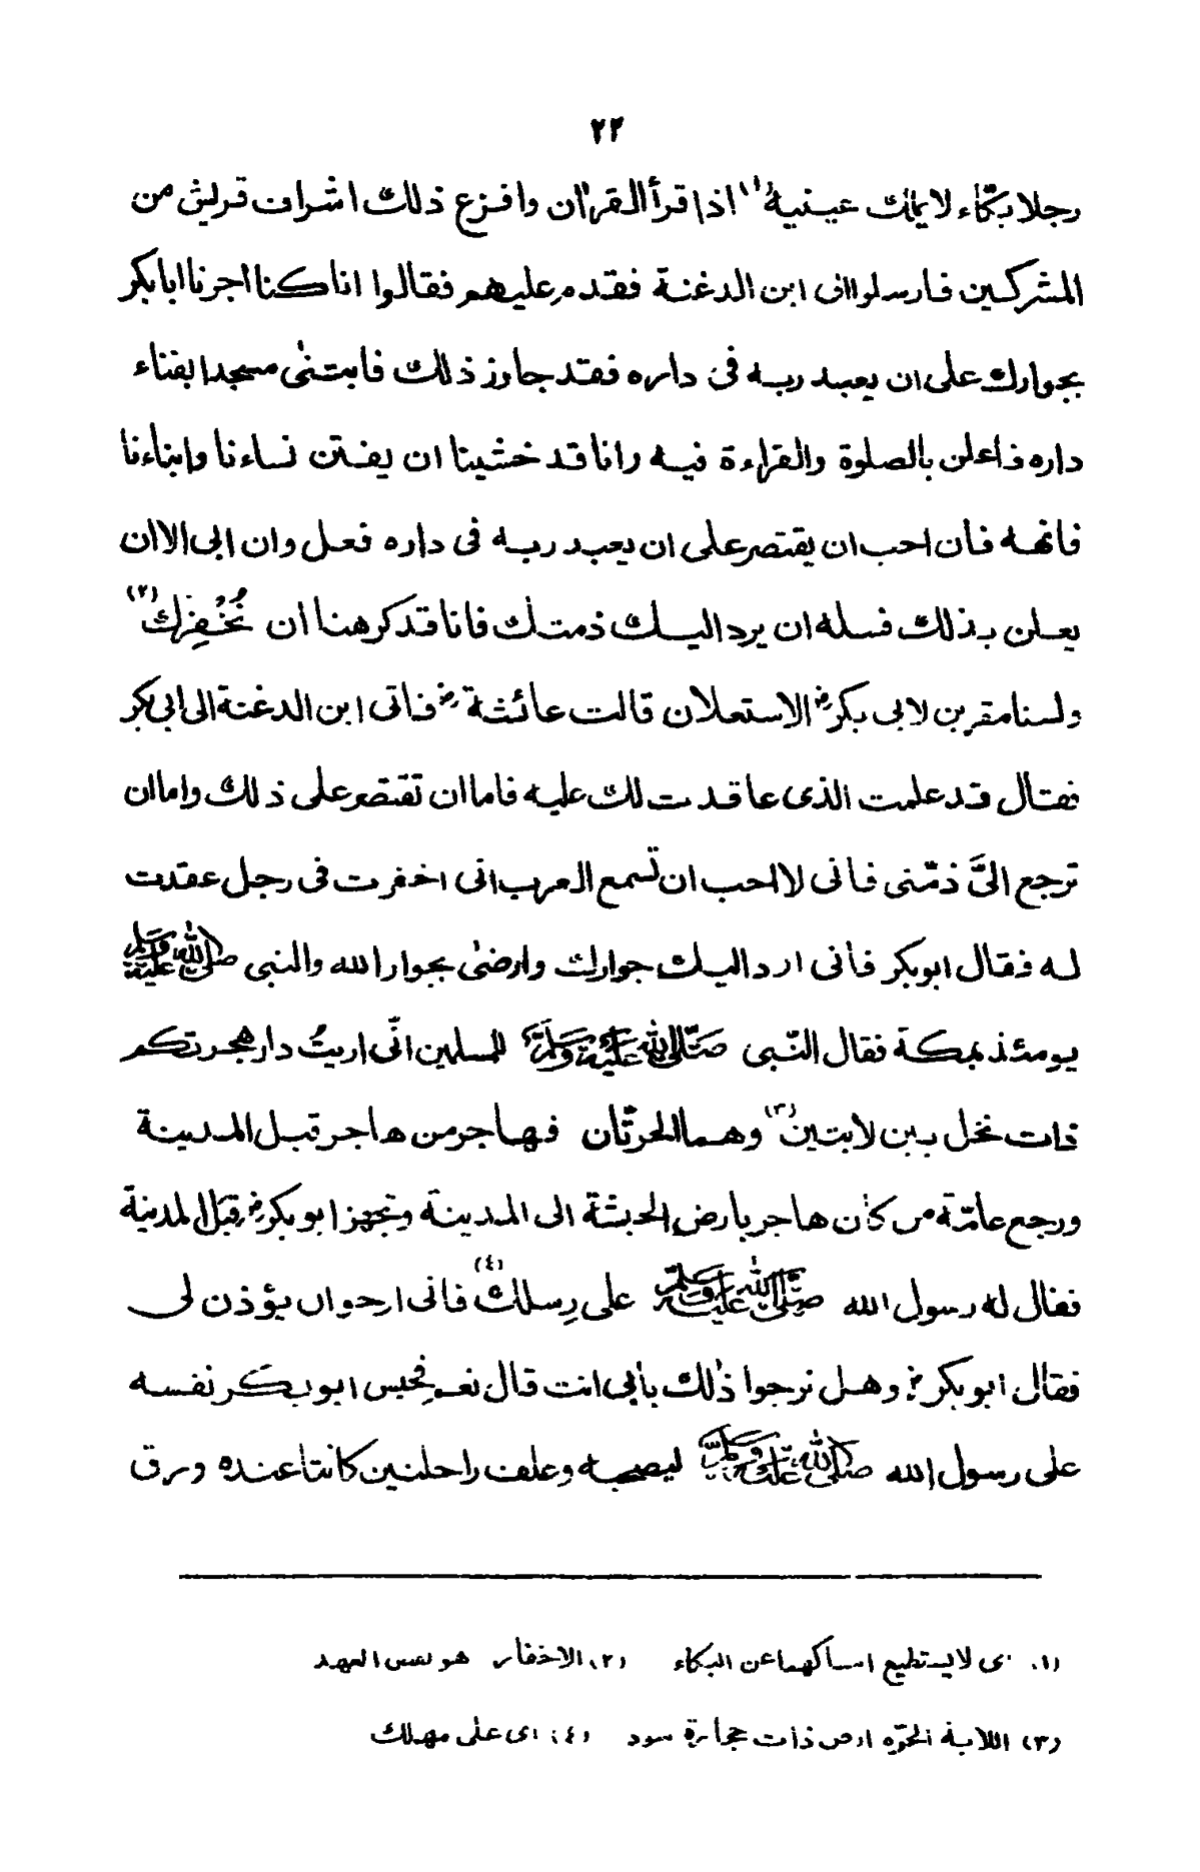 ٢٢
رجلا بكّاء لا يملك عينيه (١) اذا قرأ القرآن وافزع ذلك اشراف قريش من
المشركين فارسلوا الى ابن الدغنة فقدم عليهم فقالوا انا كنا اجرنا ابابكر
بجوارك على ان يعبد ربه فى داره فقد جاوز ذلك فابتنىٰ مسجدا بفناء
داره فاعلن بالصلوة والقراءة فيه وانا قد خشينا ان يفتن نساءنا وابناءنا
فانهه فان احب ان يقتصر على ان يعبد ربه فى داره فعل وان ابى الا ان
يعلن بذلك فسله ان يرد اليك ذمتك فانا قد كرهنا ان نُخْفِرَك (٢)
ولسنا مقربن لابى بكر رض الاستعلان قالت عائشة رض فاتى ابن الدغنة الى ابي بكر
فقال قد علمت الذى عاقدت لك عليه فاما ان تقتصر على ذلك واما ان
ترجع الىَّ ذمّتى فانى لا احب ان تسمع العرب انى اخفرت فى رجل عقدت
له فقال ابوبكر فانى ارد اليك جوارك وارضىٰ بجوار الله والنبى صلى الله عليه وسلم
يومئذ بمكة فقال النّبى صلى الله عليه وسلم للمسلمين انّى اريتُ دار هجرتكم
ذات نخل بين لابتين (٣) وهما الحرتان فهاجر من هاجر قبل المدينة
ورجع عامّة من كان هاجر بارض الحبشة الى المدينة وتجهز ابو بكر رض قبل المدنية
فقال له رسول الله صلى الله عليه وسلم على رِسلك (٤) فانى ارجوا ان يؤذن لى
فقال ابو بكر رض وهل ترجوا ذلك بأبى انت قال نعم فحبس ابو بكر نفسه
على رسول الله صلى الله عليه وسلم ليصحبه وعلف راحلتين كانتا عنده ورق
(١) اى لا يستطيع امساكهما عن البكاء (٢) الاخفار هو نقض العهد
(٣) اللابة الحرّه ارض ذات حجارة سود (٤) اى على مهلك